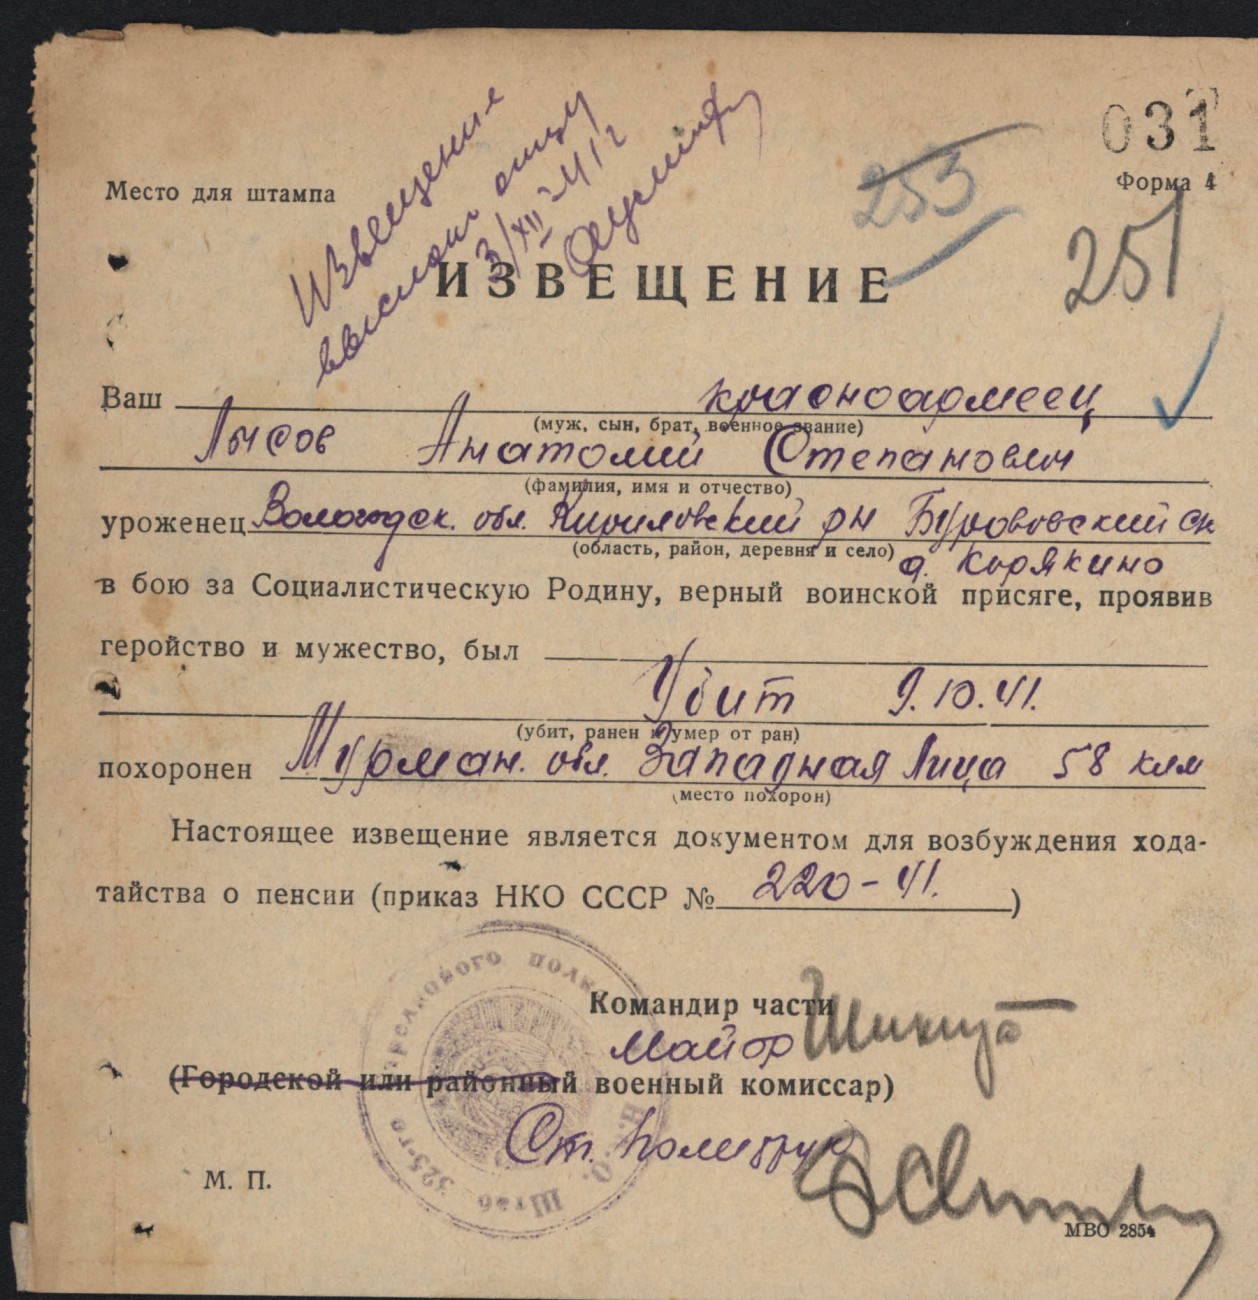 031
Форма 4
Место для штампа
253
251
Извещение
выслано отцу
3/XII-41 г
ИЗВЕЩЕНИЕ
Ваш красноармеец
(муж, сын, брат, военное звание)
Лысов Анатолий Степанович
(фамилия, имя и отчество)
уроженец Вологодск. обл. Кириловский рн Буровский
(область, район, деревня и село)
д. Корякино
в бою за Социалистическую Родину, верный воинской присяге, проявив
геройство и мужество, был
Убит 9.10.41.
(убит, ранен и умер от ран)
похоронен Мурман. обл. Западная Лица 58 клм
(место похорон)
Настоящее извещение является документом для возбуждения хода-
тайства о пенсии (приказ НКО СССР № 220-41.)
Командир части
Майор
(Городской или районный военный комиссар)
Ст. Политрук
Штаб 325-го стрелкового полка Н.К.О.
М. П.
МВО 2854